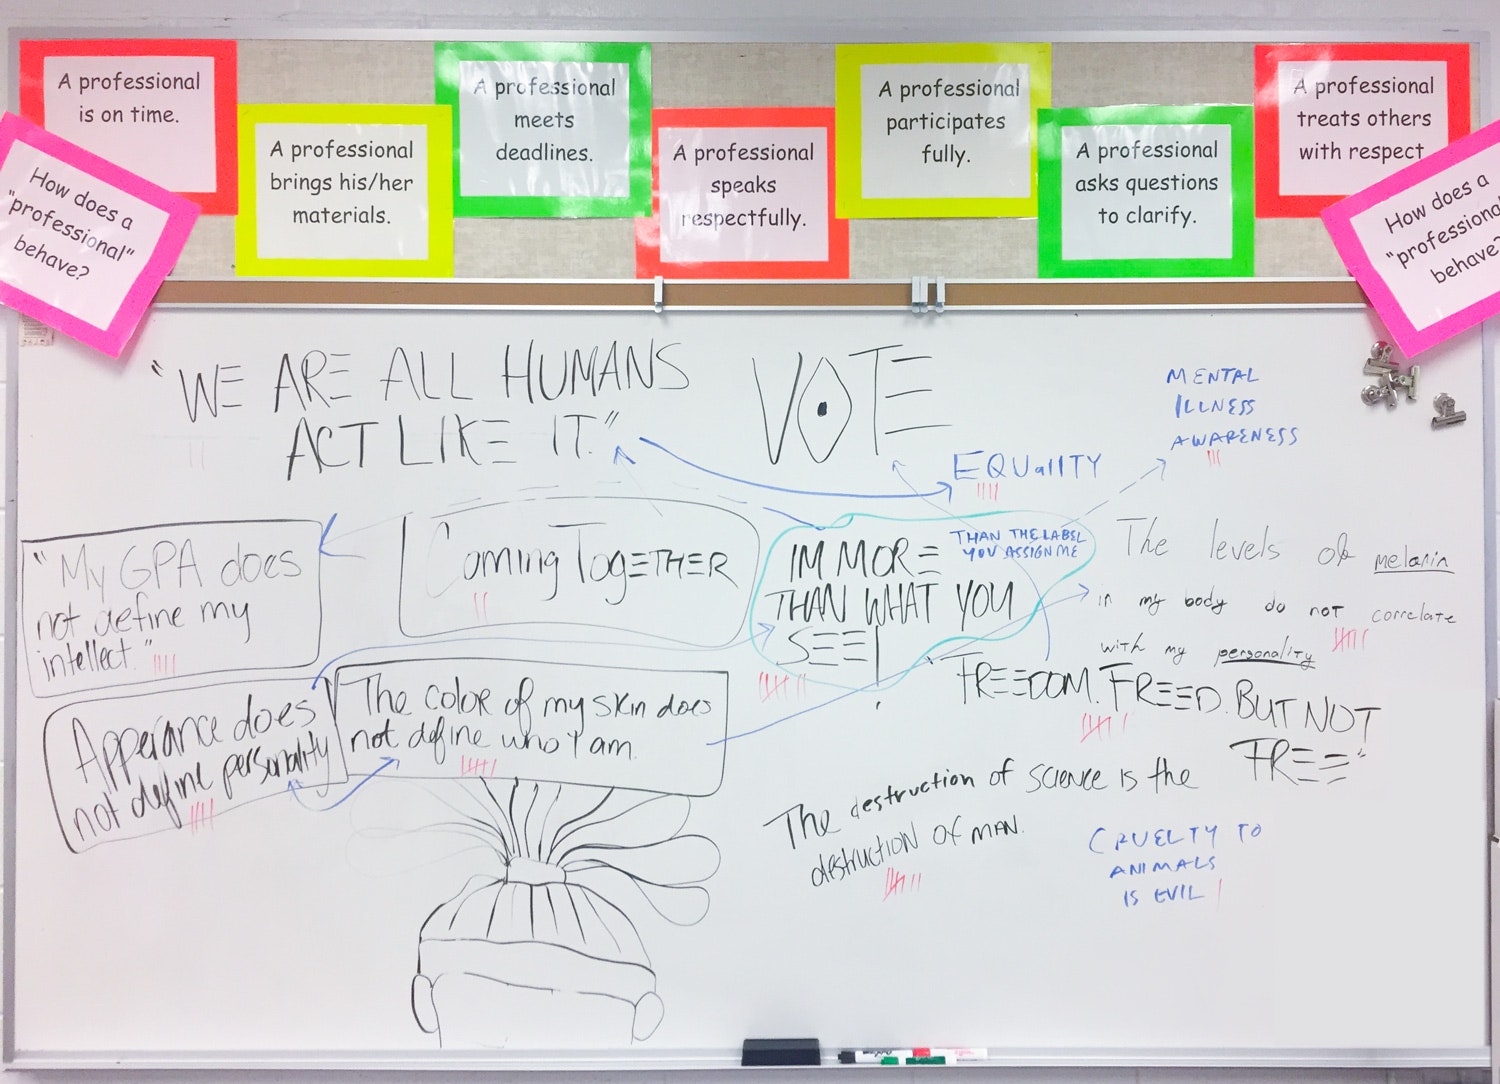 A professional
is on time.
How does a
"professional"
behave?
A professional
brings his/her
materials.
A professional
meets
deadlines.
A professional
speaks
respectfully.
A professional
participates
fully.
A professional
asks questions
to clarify.
A professional
treats others
with respect
How does a
"professional
behave?
"WE ARE ALL HUMANS
ACT LIKE IT."
VOTE
MENTAL
ILLNESS
AWARENESS
EQUallTY
"My GPA does
not define my
intellect."
Coming TogETHER
IM MORE
THAN WHAT YOU
SEE!
THAN THE LABEL
YOU ASSIGN ME
The levels of melanin
in my body do not correlate
with my personality
Apperance does
not define personality
The color of my skin does
not define who I am.
"FREEDOM. FREED. BUT NOT
FREE"
The destruction of science is the
destruction of man.
CRUELTY TO
ANIMALS
IS EVIL